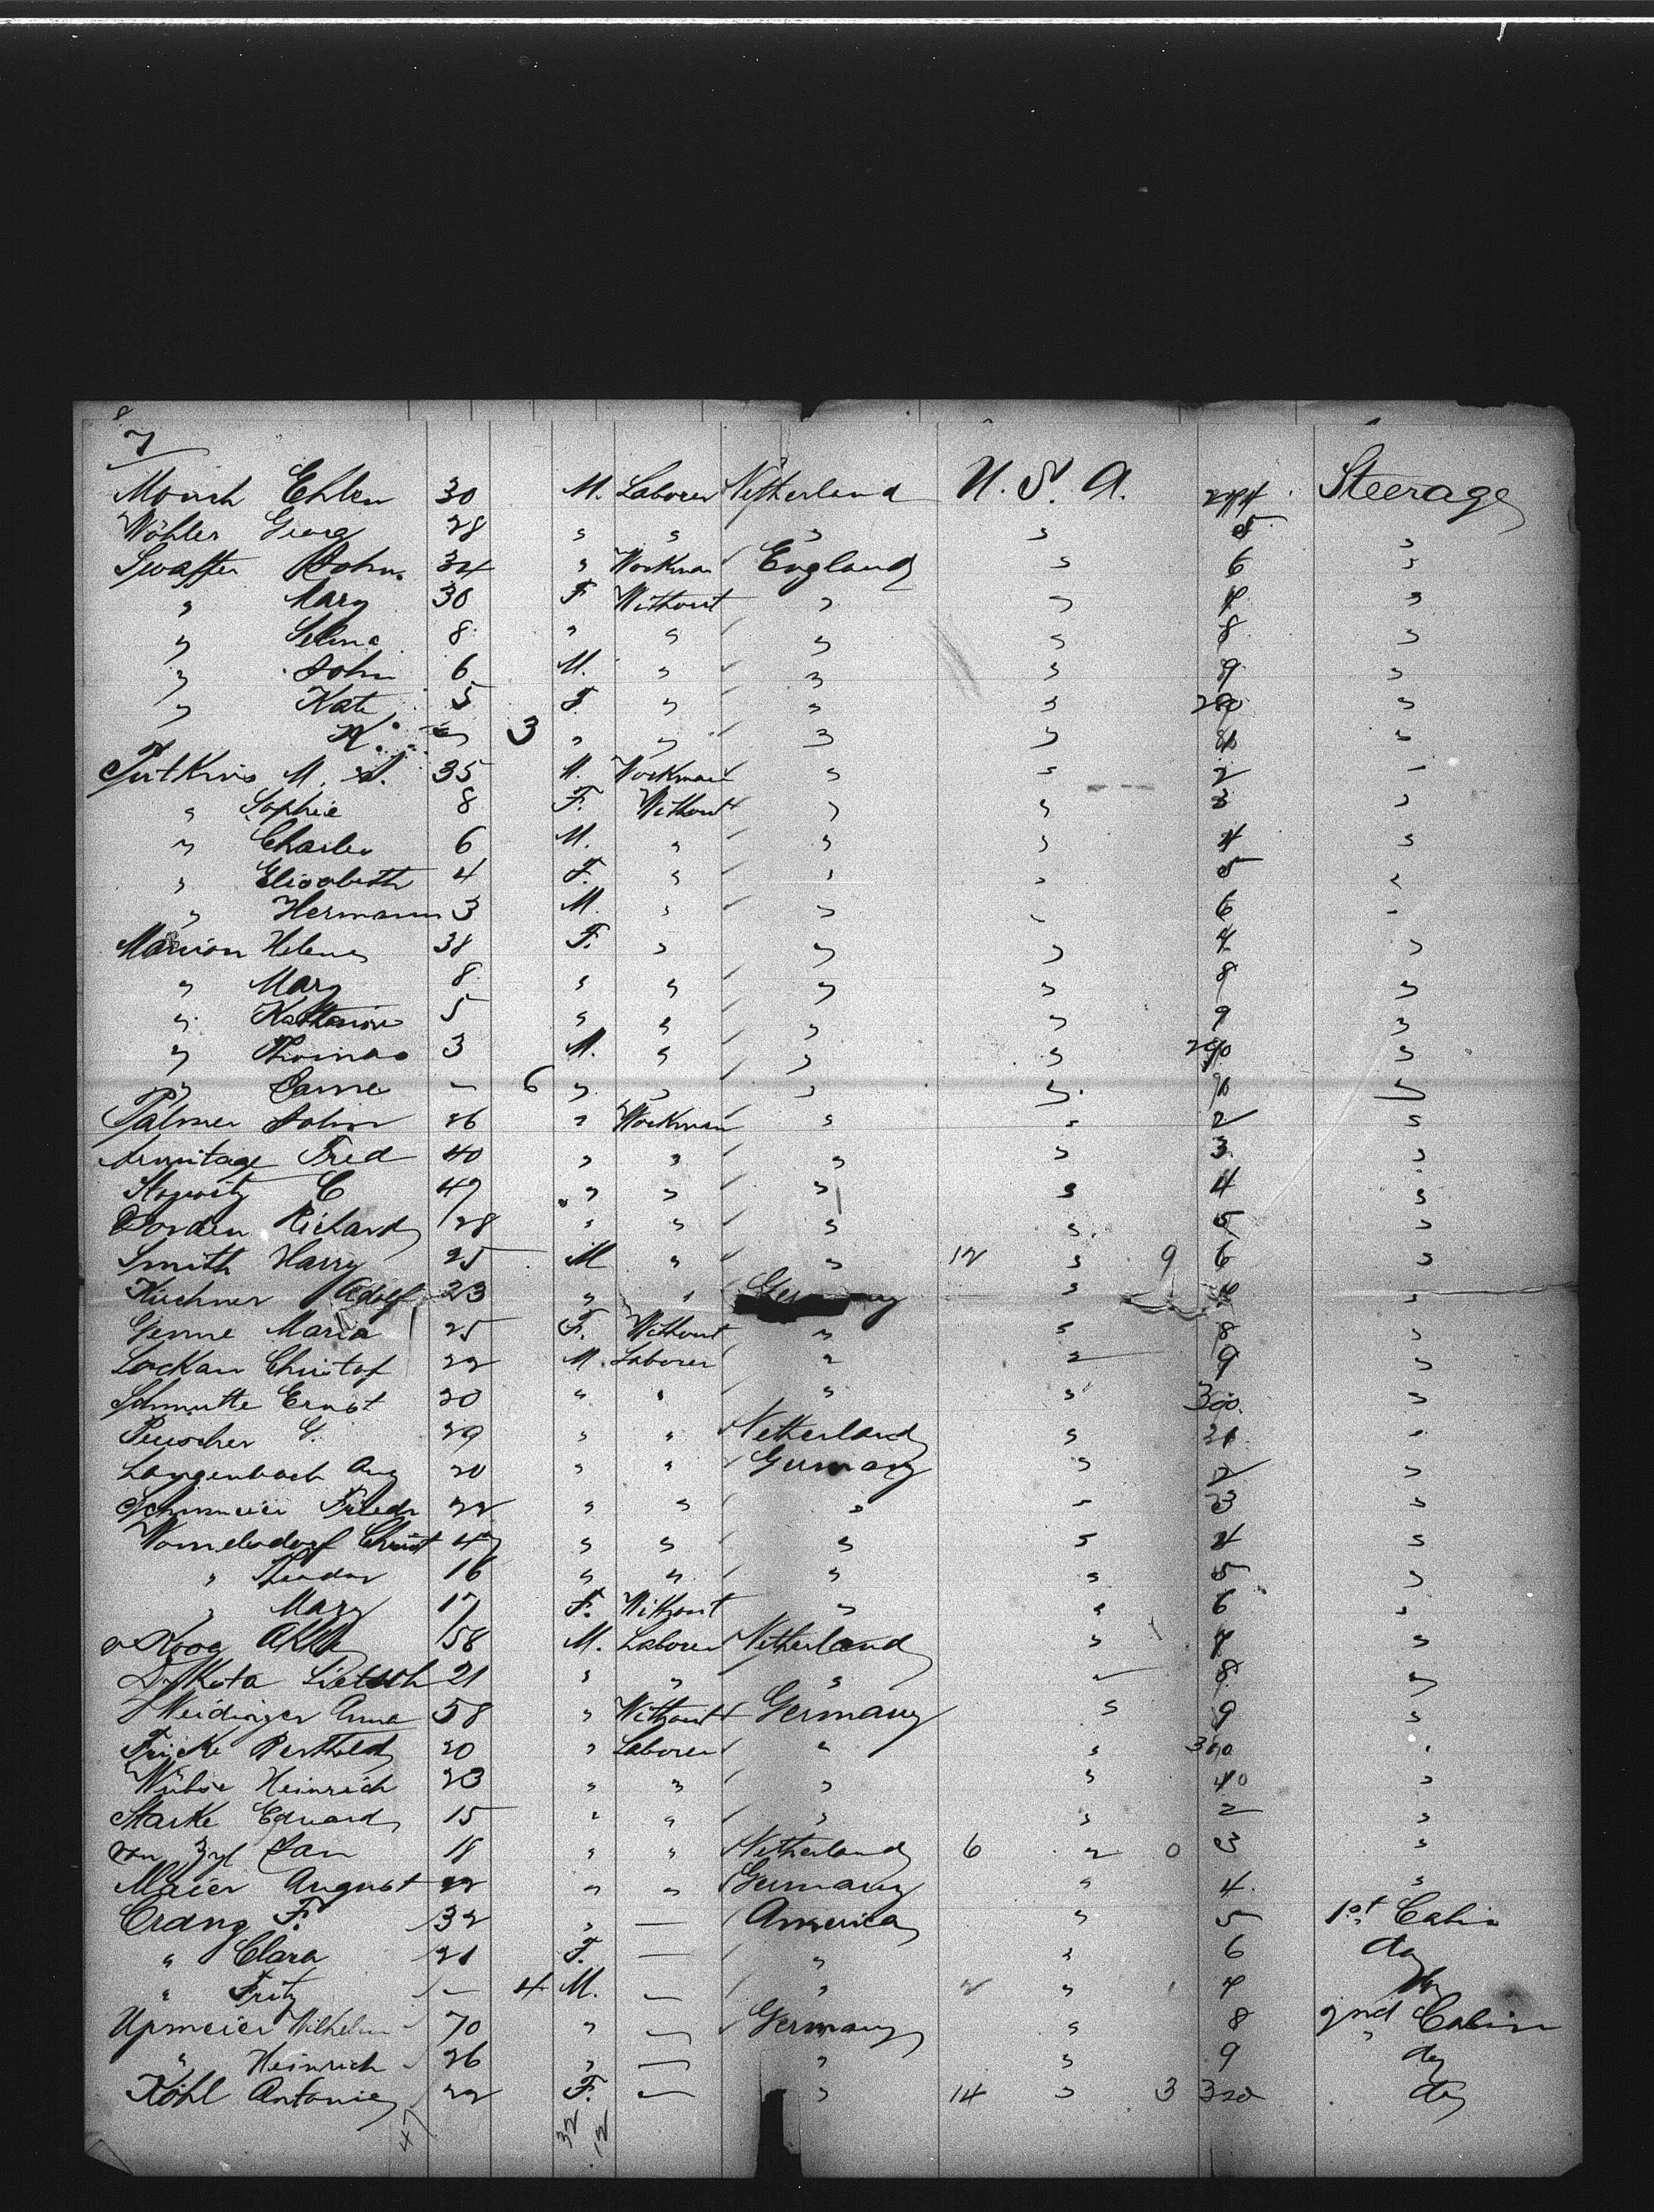 7
Ehlen 30 M. Laborer Netherland U. S. A. 274 Steerage
Wöhler Georg 28 " " " " 5 "
Swaffer John 34 " Workman England " 6 "
" Mary 30 F Without " " 7 "
" Selma 8 " " " " 8 "
" John 6 M. " " " 9 "
" Kate 5 F. " " " 280 "
" 3 " " " " 81 "
M. 35 M. Workman " " 2 "
" Sophie 8 F. Without " " 3 "
" Charles 6 M. " " " 4 "
" Elisabeth 4 F. " " " 5 "
" Hermann 3 M. " " " 6 "
Marion Helene 38 F. " " " 7 "
" Mary 8 " " " " 8 "
" 5 " " " " 9 "
" Thomas 3 M. " " " 290 "
" — 6 " " " " 91 "
Palmer John 26 " Workman " " 2 "
Armitage Fred 40 " " " " 3 "
C 47 " " " " 4 "
Richard 28 " " " " 5 "
Smith Harry 25 M " " 12 " 9 6 "
Kirchner Adolf 23 " " Germany " 7 "
Genne Maria 25 F. Without " " 8 "
Christof 22 M. Laborer " " 9 "
Schmutte Ernst 20 " " " " 300 "
G. 29 " " Netherland " 31 "
Langenbach Aug 20 " " Germany " 2 "
Friedr 22 " " " " 3 "
Womelsdorf Christ 47 " " " " 4 "
" Theodor 16 " " " " 5 "
" Mary 17 F. Without " " 6 "
58 M. Laborer Netherland " 7 "
21 " " " " 8 "
Weidinger Anna 58 " Without Germany " 9 "
Fricke Berthold 20 " Laborer " " 310 "
Heinrich 23 " " " " "
Starke Eduard 15 " " " " 2 "
van Zyl Jan 18 " " Netherland 6 " 0 3 "
Maier August 22 " " Germany " 4 "
F. 32 " — America " 5 1st Cabin
" Clara 21 F. — " " 6 do
" Fritz — 4 M. — " 2 " 1 7 do
Upmeier Wilhelm 70 " — Germany " 8 2nd Cabin
" Heinrich 26 " — " " 9 do
Köhl Antonie 22 F. — " 14 " 3 320 do
47 32 12